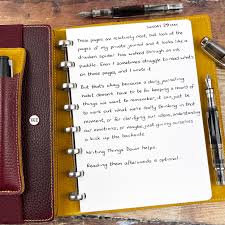 These pages are relatively neat, but look at the
pages of my private journal and it looks like a
drunken spider has waded through an ink
puddle. Even I sometimes struggle to read what's
on those pages, and I wrote it.
But that's okay because a daily journaling
habit doesn't have to be for keeping a record of
things we want to remember, it can just be
to work out what we're really thinking in that
moment, or for clarifying our ideas, understanding
our emotions, or maybe, just giving ourselves
a kick up the backside.
Writing Things Down helps.
Reading them afterwards is optional.